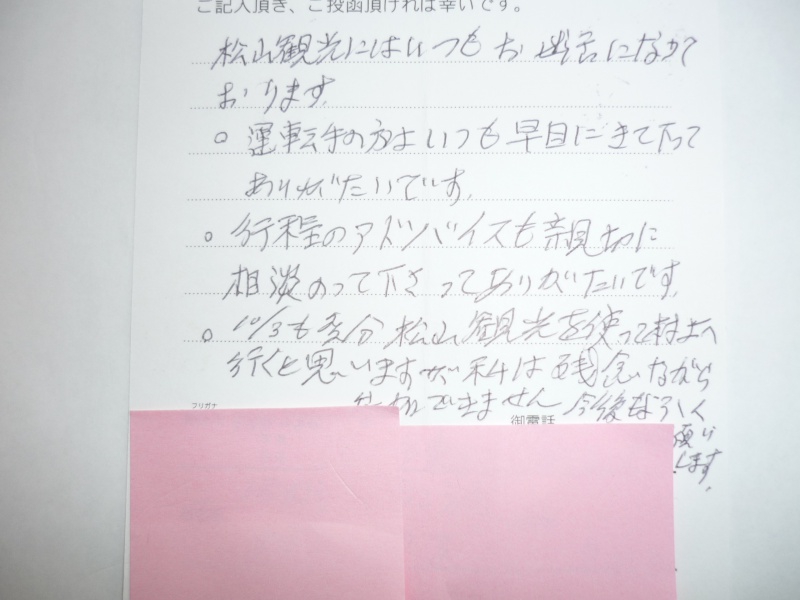 ご記入頂き、ご投函頂ければ幸いです。
松山観光にはいつもお世話になって
おります。
○ 運転手の方はいつも早目にきて下って
ありがたいです。
○ 行程のアドバイスも親切に
相談のって下さってありがたいです。
○ 10/3も多分松山観光を使って村上へ
行くと思いますが私は残念ながら
できません 今後もよろしく
フリガナ
御電話
願い
します。